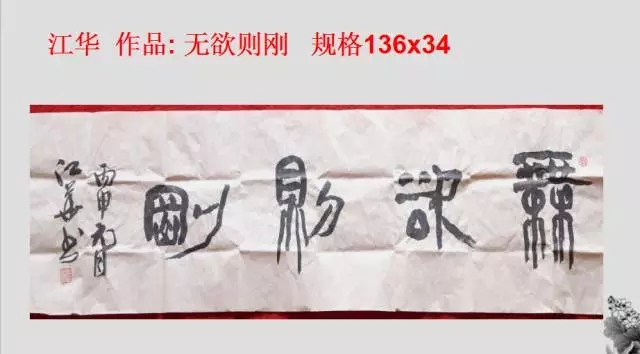 江华 作品: 无欲则刚 规格136x34
無欲則剛
丙申
江華书